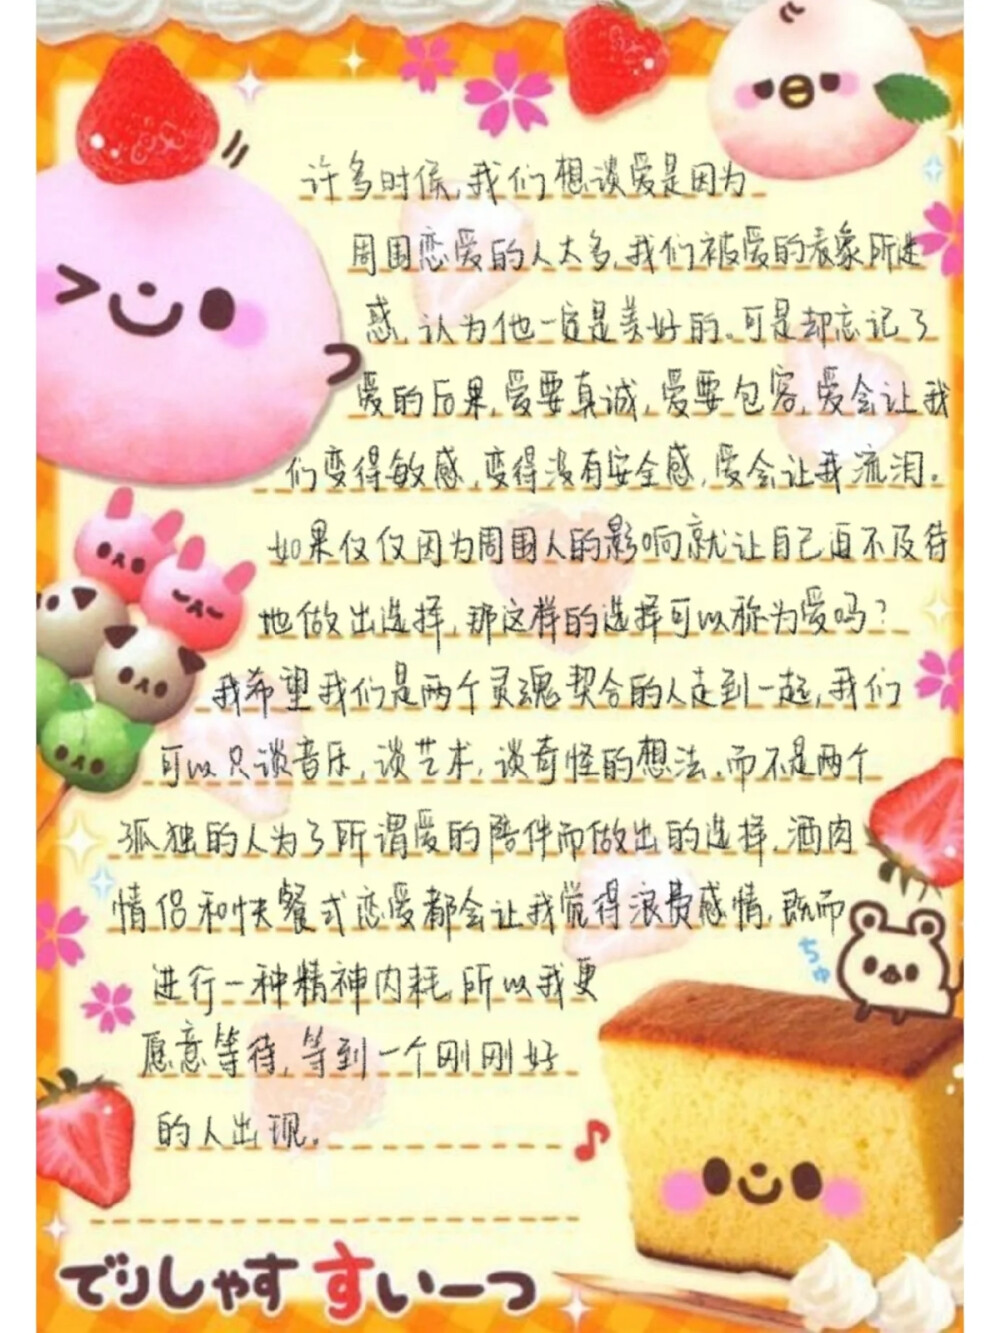 许多时候,我们想谈爱是因为
周围恋爱的人太多,我们被爱的表象所迷
惑,认为他一定是美好的。可是却忘记了
爱的后果,爱要真诚,爱要包容,爱会让我
们变得敏感,变得没有安全感,爱会让我流泪。
如果仅仅因为周围人的影响就让自己迫不及待
地做出选择,那这样的选择可以称为爱吗?
我希望我们是两个灵魂契合的人走到一起,我们
可以只谈音乐,谈艺术,谈奇怪的想法,而不是两个
孤独的人为了所谓爱的陪伴而做出的选择,酒肉
情侣和快餐式恋爱都会让我觉得浪费感情,既而
进行一种精神内耗,所以我更
愿意等待,等到一个刚刚好
的人出现。
ちゅ
でりしゃすすいーつ